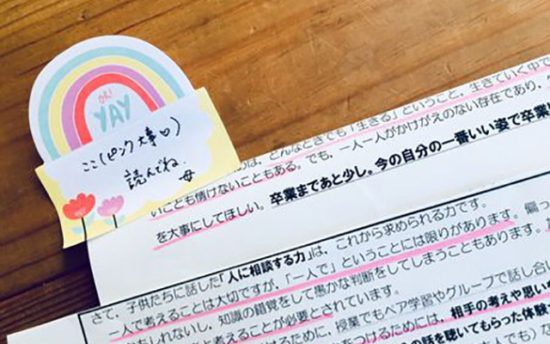 OH!
YAY
ここ(ピンク大事♡)
読んでね。
母
は、どんなときでも「生きる」ということ、生きていく中で
いことも情けないこともある。でも、一人一人がかけがえのない存在であり、
を大事にしてほしい。卒業まであと少し。今の自分の一番いい姿で卒業
さて、子供たちに話した「人に相談する力」は、これから求められる力です。
一人で考えることは大切ですが、「一人で」ということには限りがあります。偏っ
かもしれないし、知識の錯覚をして愚かな判断をしてしまうこともあります。
と考えることが必要とされています。
けるために、授業でもペア学習やグループで話し合い
をつけるためには、相手の考えや思いや
の話を聴いてもらった体験